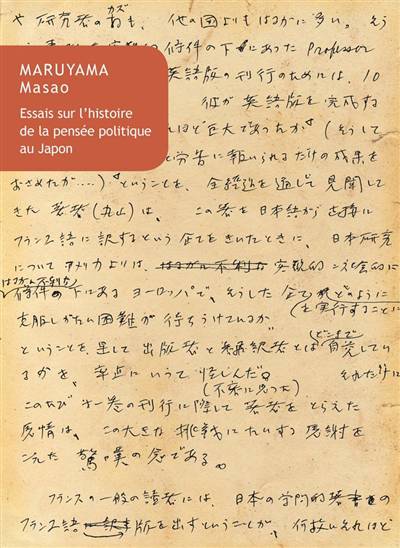 や研究者の数も、他の国よりもはるかに多い。そう
カズ
の条件の下にあった Professor
MARUYAMA
Masao
Essais sur l’histoire
de la pensée politique
au Japon
英語版の刊行のためには、10
彼が英語版を完成する
ほど巨大であったか（そうして
と労苦に報いられるだけの成果を
おさめたか....）ということを、全経過を通して見聞して
きた著者（丸山）は、この巻を日本語から直接に
フランス語に訳するという企てをきいたときに、日本研究
についてアメリカよりは、はるかに不利な 客観的こと
はるかに不利な
条件の下にあるヨーロッパで、そうした企てがどのように
を実行することに
克服しがたい困難が待ちうけているか
ということを、果して出版者と翻訳者とは自覚してい
どこまで
るかを、率直にいって怪しんだ。それだけに
（不安に思った）
このたび第一巻の刊行に際して著者をとらえた
感情は、この大きな挑戦にたいする感謝を
こえた驚嘆の念である。
フランスの一般の読者には、日本の学問的著書の
フランス語訳版を出すということが、何故それほど